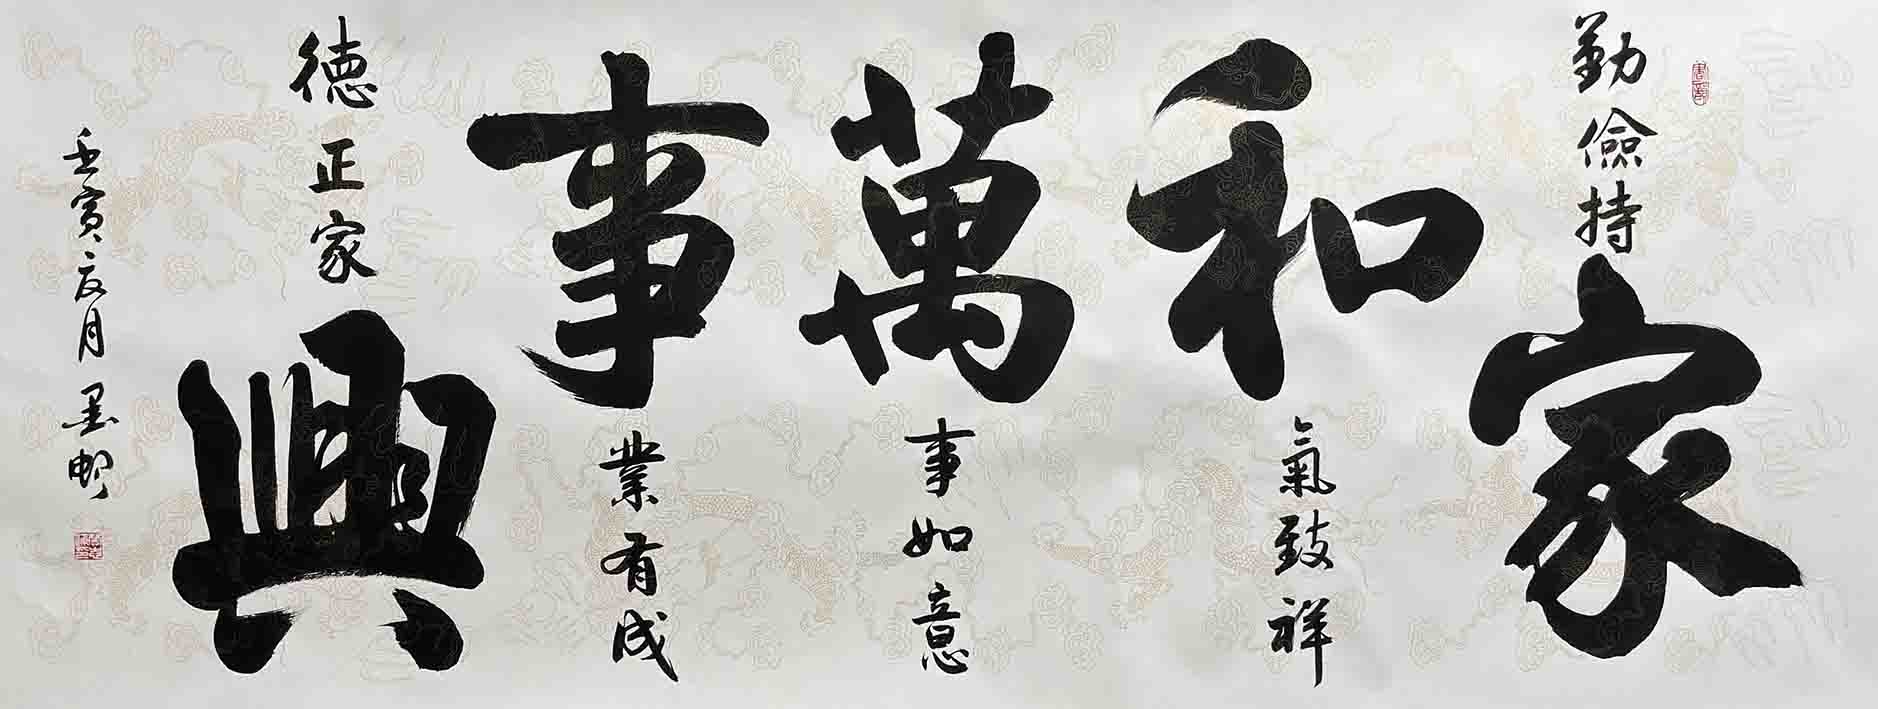 勤儉持家
和氣致祥
萬事如意
事業有成
德正家興
壬寅
月